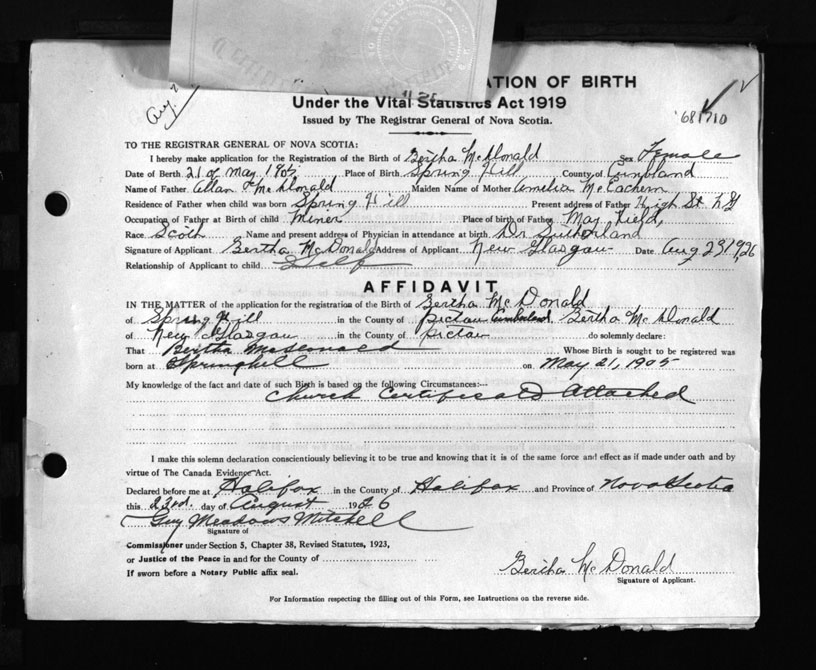 Aug 2
TION OF BIRTH
Under the Vital Statistics Act 1919
Issued by The Registrar General of Nova Scotia.
681710
TO THE REGISTRAR GENERAL OF NOVA SCOTIA:
I hereby make application for the Registration of the Birth of Bertha McDonald Sex Female
Date of Birth 21 of May 1905 Place of Birth Spring Hill County of Cumberland
Name of Father Allan McDonald Maiden Name of Mother Amelia McEachern
Residence of Father when child was born Spring Hill Present address of Father High St N.G
Occupation of Father at Birth of child Miner Place of birth of Father May Field,
Race Scotch Name and present address of Physician in attendance at birth Dr Sutherland
Signature of Applicant Bertha McDonald Address of Applicant New Glasgow Date Aug 23 1926
Relationship of Applicant to child Self
AFFIDAVIT
IN THE MATTER of the application for the registration of the Birth of Bertha McDonald
of Spring Hill in the County of Pictou Cumberland. Bertha McDonald
of New Glasgow in the County of Pictou do solemnly declare:
That Bertha McDonald Whose Birth is sought to be registered was
born at Springhill on May 21, 1905
My knowledge of the fact and date of such Birth is based on the following Circumstances:--
Church Certificate Attached
I make this solemn declaration conscientiously believing it to be true and knowing that it is of the same force and effect as if made under oath and by
virtue of The Canada Evidence Act.
Declared before me at Halifax in the County of Halifax and Province of Nova Scotia
this 23rd. day of August 1926
Guy Meadows Mitchell
Signature of
Commissioner under Section 5, Chapter 38, Revised Statutes, 1923,
or Justice of the Peace in and for the County of
If sworn before a Notary Public affix seal.
Bertha McDonald
Signature of Applicant.
For Information respecting the filling out of this Form, see Instructions on the reverse side.